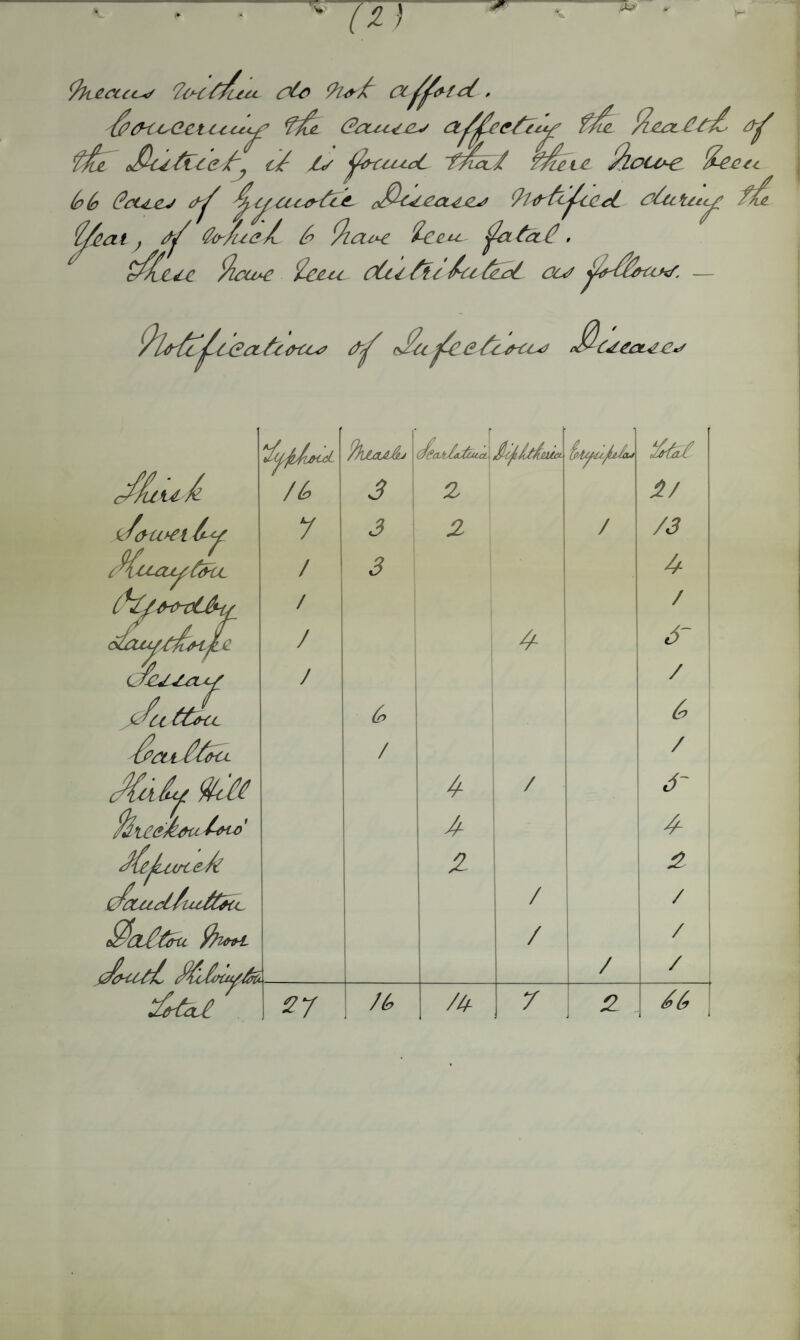 (2)
Means Within do Not afford.
Concerning the Causes affecting the health of
the District, it is found that there have been
66 Cases of Zymotic Diseases Notified during the
Year, of Which 6 have been fatal.
These have been distributed as follows. —
Notifications of Infectious Diseases
Typhoid Measles Scarlatina Diphtheria Erysipelas Total
Thirsk 16 3 2 21
Sowerby 7 3 2 1 13
Knayton 1 3 4
Osgoodby 1 1
Langthorpe 1 4 5
Sessay 1 1
Sutton 6 6
Carlton 1 1
Kirby Hill 4 1 5
Breckonbro' 4 4
Hepwick 2 2
Sandhutton 1 1
Dalton Moor 1 1
South Kilvington 1 1
Total 27 16 14 7 2 66